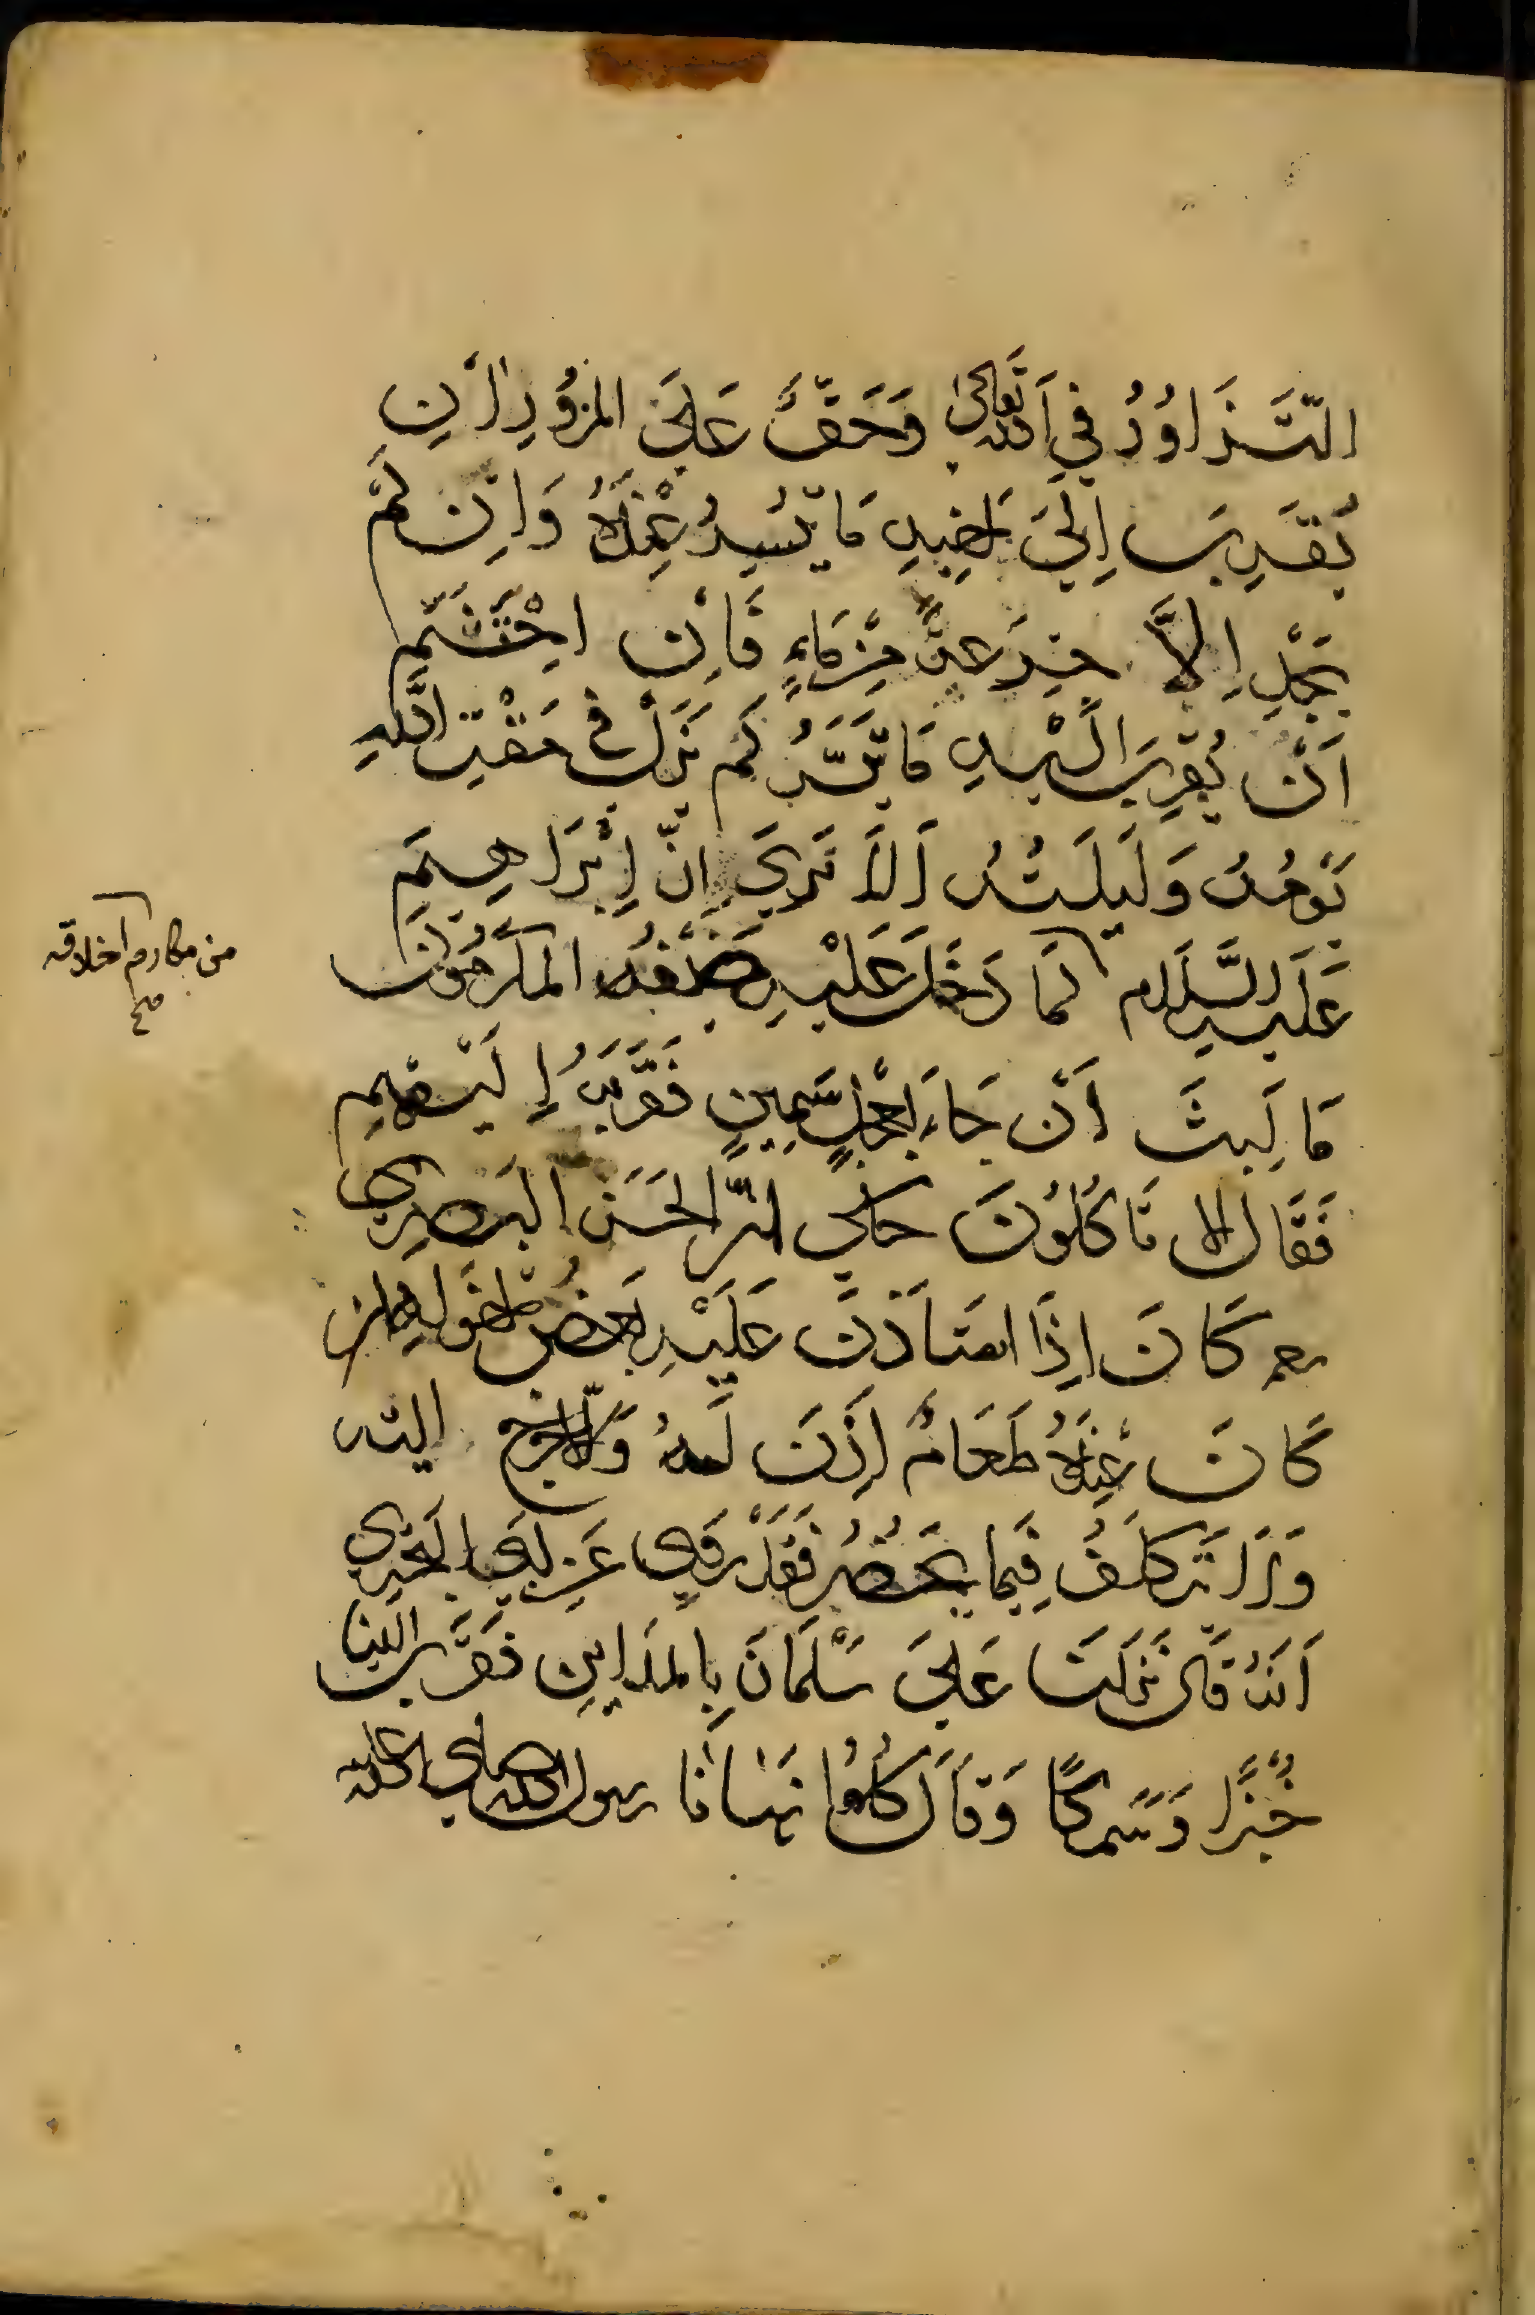 التَّزَاوُرُ فِي اللهِ تَعَالَى وَحَقٌّ عَلَى المَزُورِ اَنْ
يُقَرِّبَ اِلَى اَخِيهِ مَا تَيَسَّرَ عِنْدَهُ وَاِنْ لَمْ
يَجِدْ اِلَّا جُرْعَةً مِنْ مَاءٍ فَاِنِ احْتَشَمَ
اَنْ يُقَرِّبَ اِلَيْهِ مَا تَيَسَّرَ لَمْ يَزَلْ فِي مَقْتِ اللهِ
يَوْمَهُ وَلَيْلَتَهُ اَلَا تَرَى اِنَّ اِبْرَاهِيمَ
عَلَيْهِ السَّلَام لَمَّا دَخَلَ عَلَيْهِ ضَيْفُهُ المُكْرَمُونَ
من مكارم اخلاقه
صح
مَا لَبِثَ اَنْ جَاءَ بِعِجْلٍ سَمِينٍ فَقَرَّبَهُ اِلَيْهِمْ
فَقَالَ اَلَا تَاكُلُونَ حكي ان الحَسَنَ البَصْرِي
رحمه كَانَ اِذَا استَاذَنَ عَلَيْهِ بَعْضُ اِخْوَانِهِ فان
كَانَ عِنْدَهُ طَعَامٌ اَذِنَ لَهُ وَاِلَّا خَرَجَ اليه
وَلَا يَتَكَلَّفُ فِيمَا يَحْضُرُ فَقَدْ رُوِيَ عَنْ اَبِي البَخْتَرِي
اَنَّهُ قَالَ نَزَلْنَا عَلَى سَلْمَانَ بِالمَدَايِنِ فَقَرَّبَ اِلَيْنَا
خُبْزًا وَسَمَكًا وَقَالَ كُلُوا نَهَانَا رسول الله صلى الله عليه